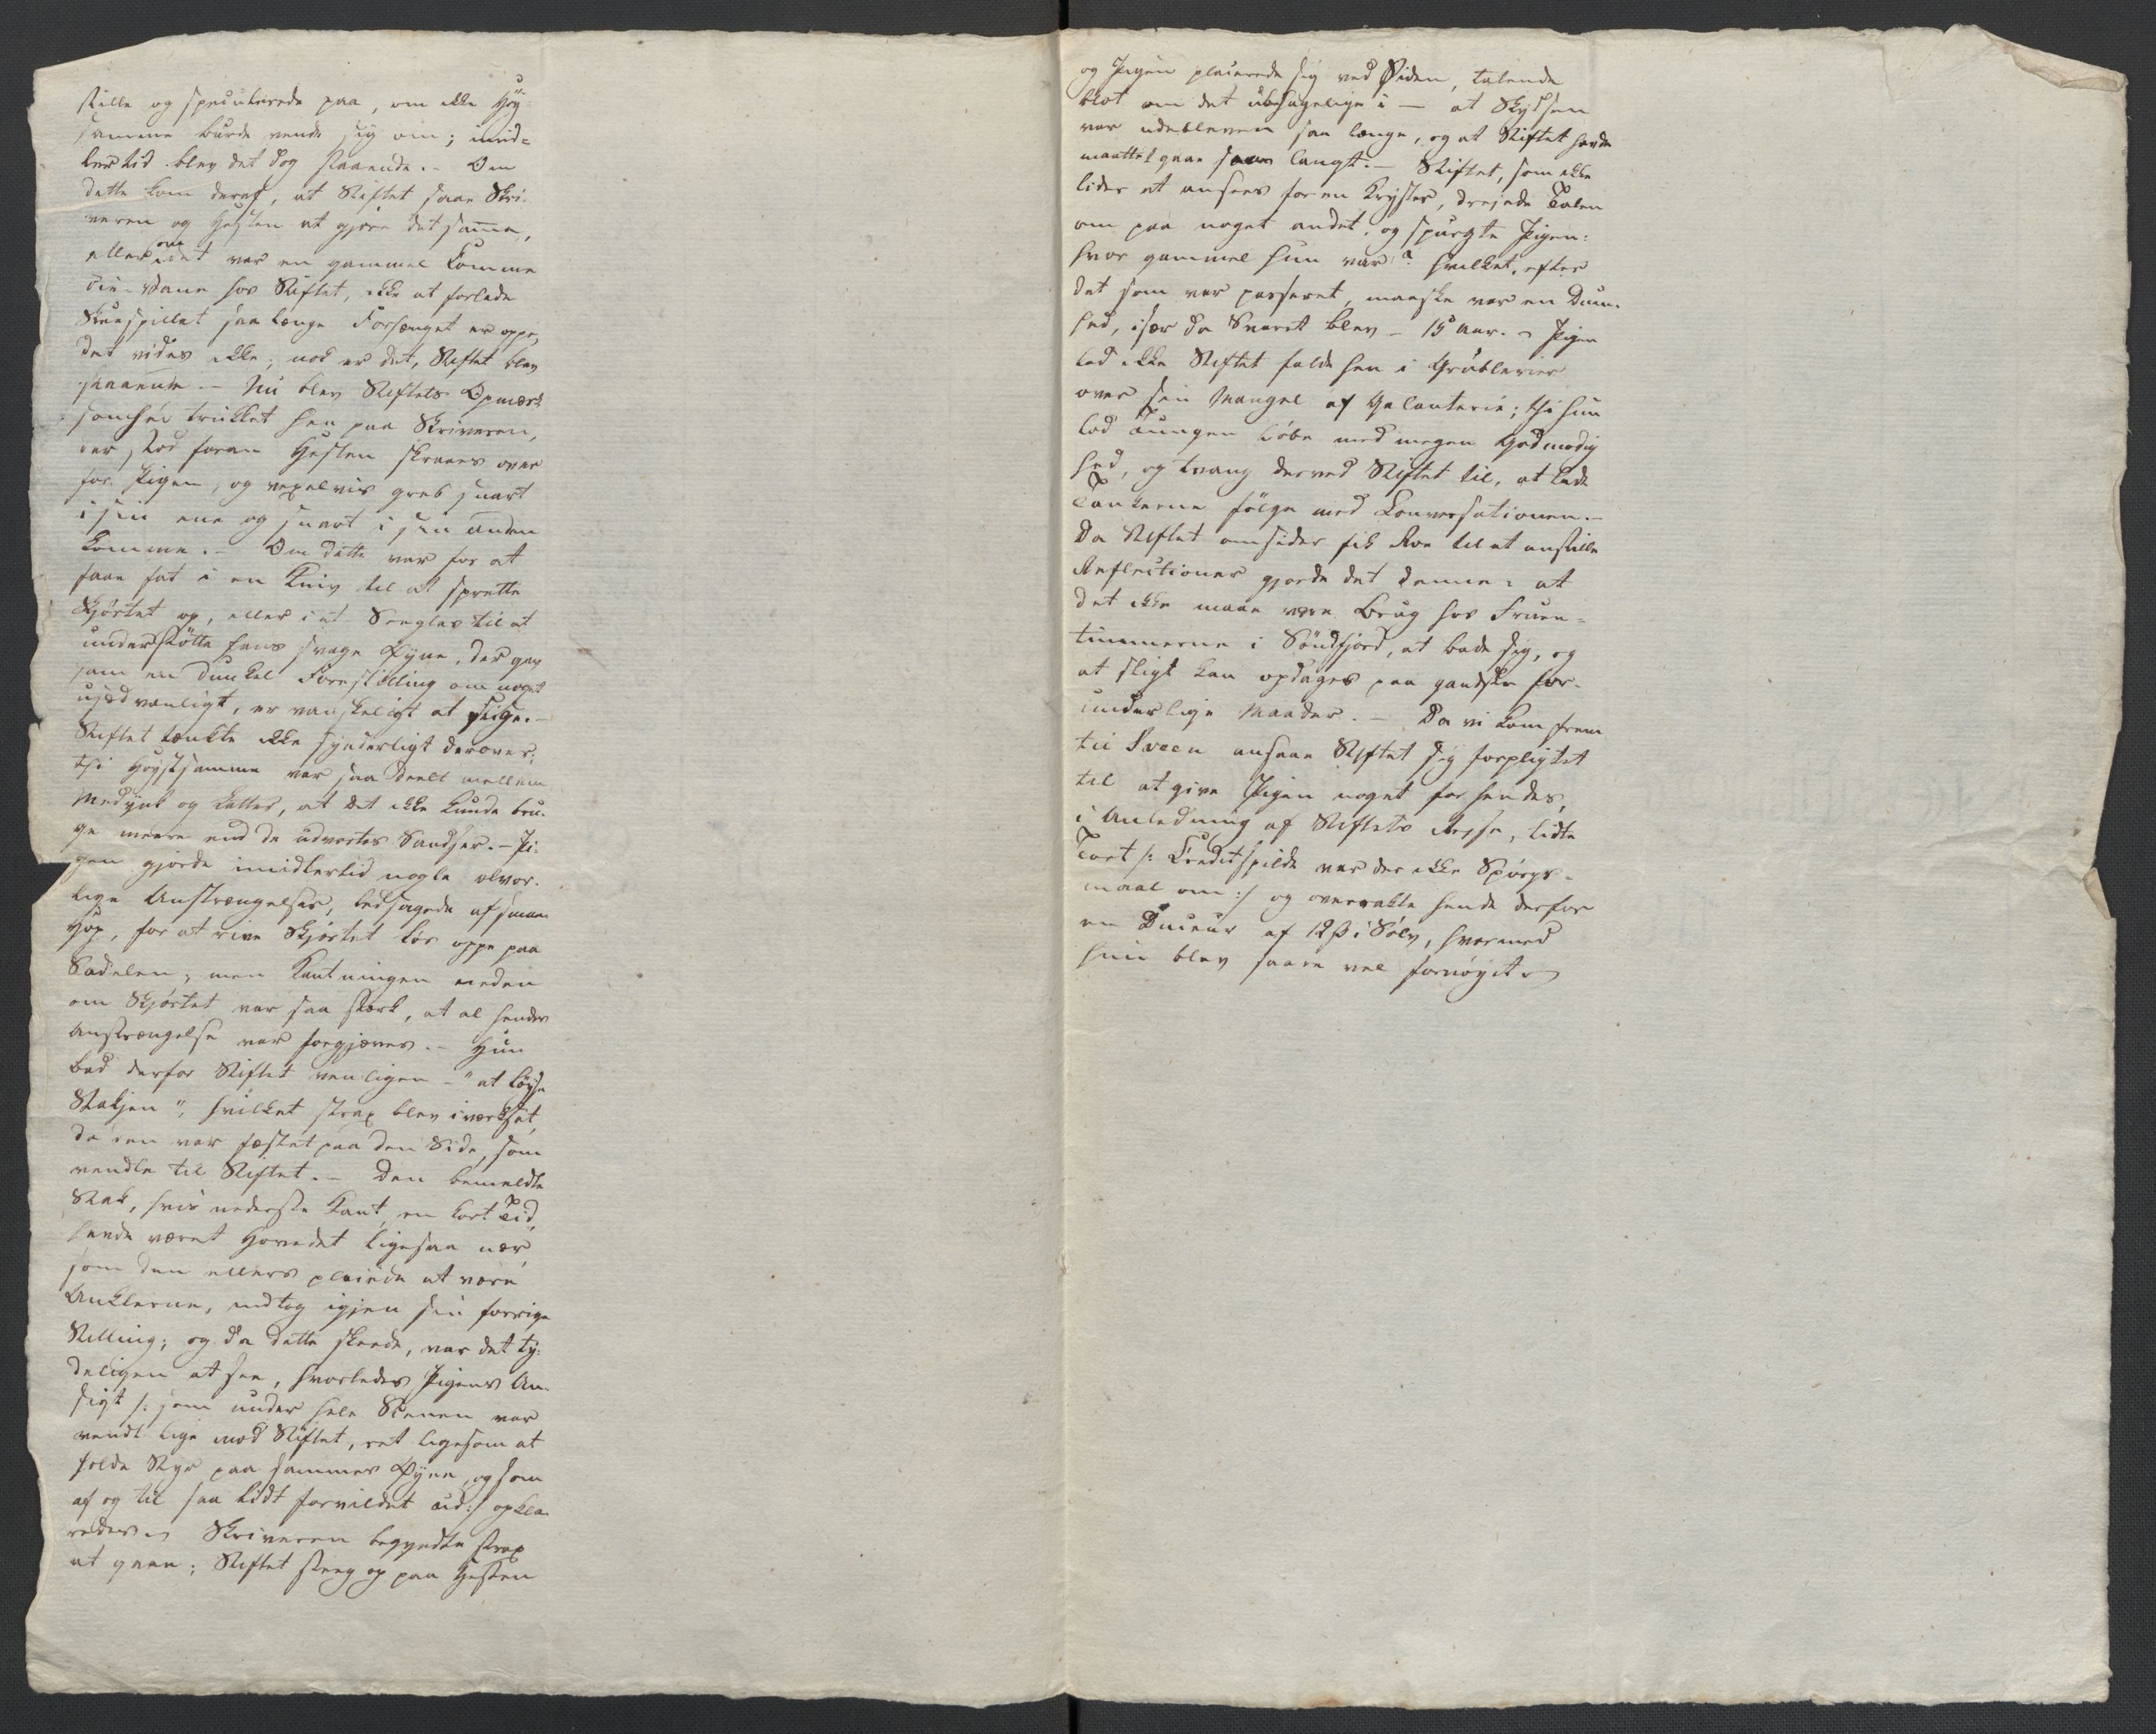 stille og speculerede paa, om ikke Høy-
samme burde vende sig om; imid-
lertid blev det dog staaende. – Om
dette kom deraf, at Stiftet saae Skri-
veren og Hesten at gjøre det samme,
eller om det var en gammel Komme
die-Vane hos Stiftet, ikke at forlade
Skuespillet saa længe Forhænget er oppe,
det vides ikke; nok er det, Stiftet blev
staaende. – Nu blev Stiftets Opmærk
somhed trukket hen paa Skriveren,
der stod foran Hesten skraaes over
for Pigen, og vexelvis greb snart
i sin ene og snart i sin anden
Lomme. – Om dette var for at
faae fat i en Kniv til at sprette
Skjørtet op, eller i et Seeglas til at
understøtte hans svage Øyne, der gav
ham en dunkel Forestilling om noget
usædvanligt, er vanskeligt at sige. –
Stiftet tænkte ikke synderligt derover;
thi Høystsamme var saa deelt mellem
Medynk og Latter, at det ikke kunde bru-
ge meere end de udvortes Sandser. – Pi-
gen gjorde imidlertid nogle alvor-
lige Anstrængelser, ledsagede af smaae
Hop, for at rive Skjørtet løs oppe paa
Sadelen; men Kantningen neden
om Skjørtet var saa stærk, at al hendes
Anstrængelse var forgjæves. – Hun
bad derfor Stiftet venligen – "at løyse
Stakjen", hvilket strax blev iværksat,
da den var fæstet paa den Side, som
vendte til Stiftet. – Den bemeldte
Stak, hvis nederste Kant en kort Tid
havde været Hovedet ligesaa nær,
som den ellers pleiede at være
Anklerne, indtog igjen sin forrige
Stilling; og da dette skeede, var det ty-
deligen at see, hvorledes Pigens An-
sigt /: som under hele Scenen var
vendt lige mod Stiftet, ret ligesom at
holde Styr paa sammes Øyne, og som
af og til saa lidt forvildet ud :/ opkla-
redes. – Skriveren begyndte strax
at gaae; Stiftet steeg op paa Hesten
og Pigen placerede sig ved Siden, talende
blot om det ubehagelige i – at Skydsen
var udebleven saa længe, og at Stiftet havde
maattet gaae saa langt. – Stiftet, som ikke
lider at ansees for en Kryster, drejede Talen
om paa noget andet, og spurgte Pigen:
hvor gammel hun var? hvilket, efter
det som var passeret, maaske var en Dum-
hed, især da Svaret blev – 15 Aar. – Pigen
lod ikke Stiftet falde hen i Grublerier
over sin Mangel af Galanterie; thi hun
lod Tungen løbe med megen Godmodig
hed, og tvang derved Stiftet til, at lade
Tankerne følge med Conversationen. –
Da Stiftet omsider fik Roe til at anstille
Reflectioner gjorde det denne: at
det ikke maae være Brug hos Fruen-
timmerne i Søndfjord, at bade sig, og
at sligt kan opdages paa gandske for-
underlige Maader. – Da vi kom frem
til Sveen ansaae Stiftet sig forpligtet
til at give Pigen noget for hendes,
i Anledning af Stiftets Reyse, lidte
Tort /: Creditspilde var der ikke Spørgs-
maal om :/ og overrakte hende derfor
en Duceur af 12 ß i Sølv, hvormed
hun blev saare vel fornøyet. –